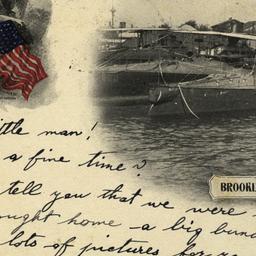 ttle man!
a fine time?
BROOKL
tell you that we were
ought home a big bun
lots of pictures for